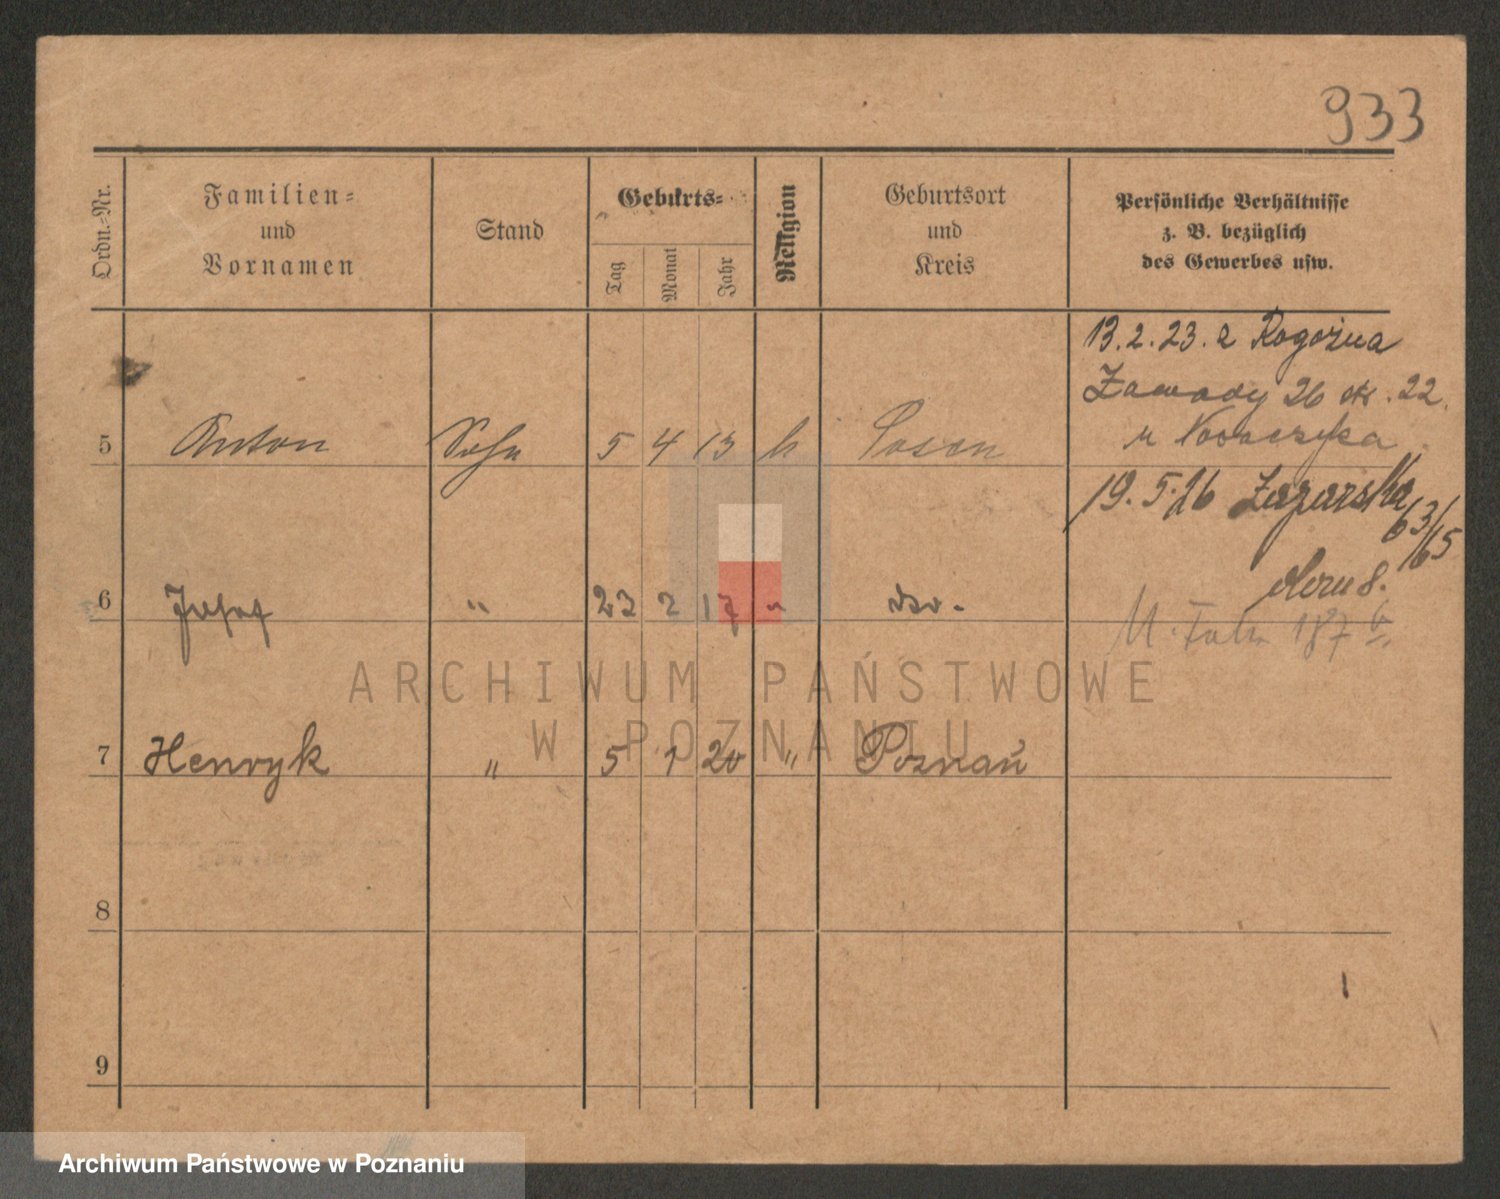 933
Ordn.-Nr.
Familien-
und
Vornamen
Stand
Geburts-
Tag
Monat
Jahr
Religion
Geburtsort
und
Kreis
Persönliche Verhältnisse
z. B. bezüglich
des Gewerbes usw.
13.2.23. z Rogoźna
Zawady 26 . 22.
5 Anton Sohn 5 4 13 k Posen
u
19.5.26 Łazarska
63/65
6 Josef " 23 2 17 " do.
187
7 Henryk " 5 1 20 " Poznań
8
9
ARCHIWUM PAŃSTWOWE
W POZNANIU
Archiwum Państwowe w Poznaniu